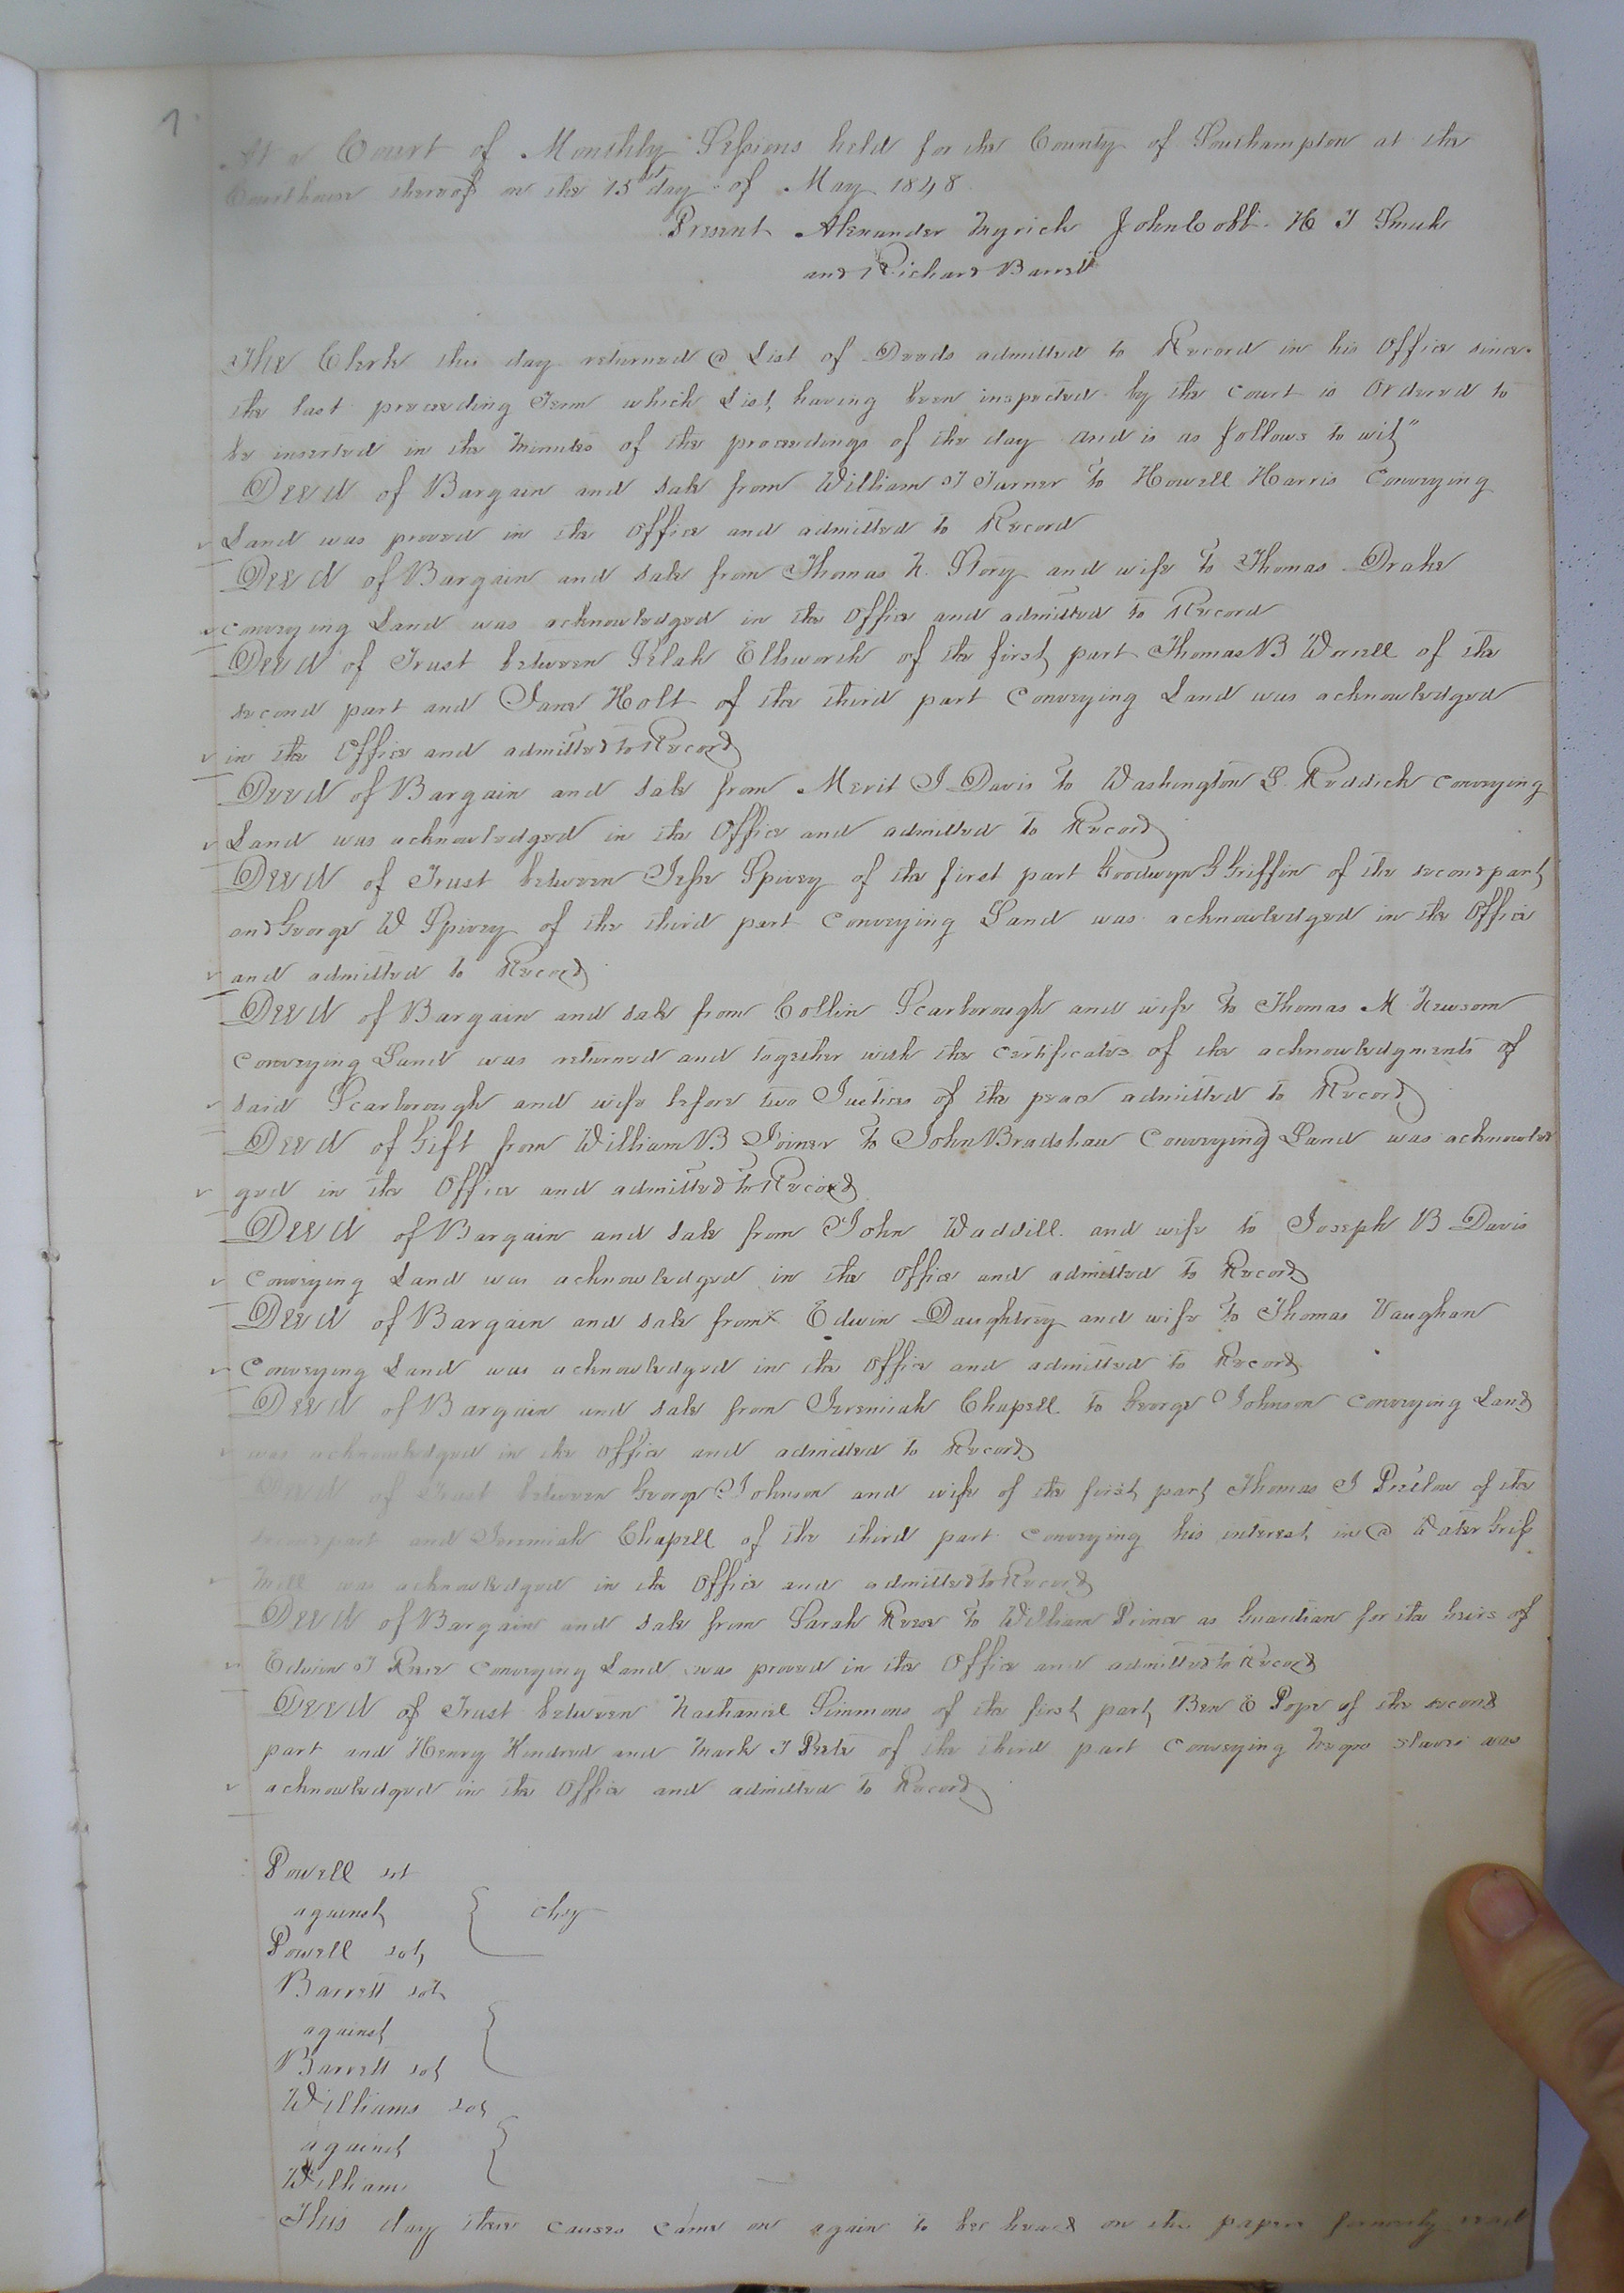 1.
At a Court of Monthly Sessions held for the County of Southampton at the
Courthouse thereof on the 15th day of May 1848
Present Alexander Myrick John Cobb. H T Smith
and Richard Barrett
The Clerk this day returned a List of Deeds admitted to Record in his Office since
the last preceeding Term which List having been inspected by the Court is Ordered to
be inserted in the Minutes of the proceedings of the day and is as follows to wit"
Deed of Bargain and sale from William T Turner to Howell Harris Conveying
Land was proved in the Office and admitted to Record
Deed of Bargain and sale from Thomas N. Story and wife to Thomas Drake
conveying Land was acknowledged in the Office and admitted to Record
Deed of Trust between Selah Ellsworth of the first part Thomas B Worrell of the
second part and Jane Holt of the third part Conveying Land was acknowledged
in the Office and admitted to Record
Deed of Bargain and sale from Merit J Davis to Washington L. Reddick conveying
Land was acknowledged in the Office and admitted to Record
Deed of Trust between Jesse Spivey of the first part Goodwyn G Griffin of the second part
and George W Spivey of the third part Conveying Land was acknowledged in the Office
and admitted to Record
Deed of Bargain and sale from Collin Scarborough and wife to Thomas M Newsom
conveying Land was returned and together with the certificates of the acknowledgments of
said Scarborough and wife before two Justices of the peace admitted to Record
Deed of Gift from William B Joiner to John Bradshaw Conveying Land was acknowled
ged in the Office and admitted to Record
Deed of Bargain and sale from John Waddill and wife to Joseph B Davis
Conveying Land was acknowledged in the Office and admitted to Record
Deed of Bargain and sale from Edwin Daughtrey and wife to Thomas Vaughan
Conveying Land was acknowledged in the Office and admitted to Record
Deed of Bargain and sale from Jeremiah Chapell to George Johnson conveying Land
was acknowledged in the Office and admitted to Record
Deed of Trust between George Johnson and wife of the first part Thomas J Pretlow of the
second part and Jeremiah Chapell of the third part conveying his interest in a Water Grist
Mill was acknowledged in the Office and admitted to Record
Deed of Bargain and sale from Sarah Reese to William Prince as Guardian for the heirs of
Edwin T Reese Conveying Land was proved in the Office and admitted to Record
Deed of Trust between Nathaniel Simmons of the first part Ben E Pope of the second
part and Henry Kindred and Mark T Peete of the third part Conveying Negro slaves was
acknowledged in the Office and admitted to Record
Powell &ct
against
Chy
Powell &ct
Barrett &ct
against
Barrett &ct
Williams &ct
against
Williams
This day these causes came on again to be heard on the papers formerly read